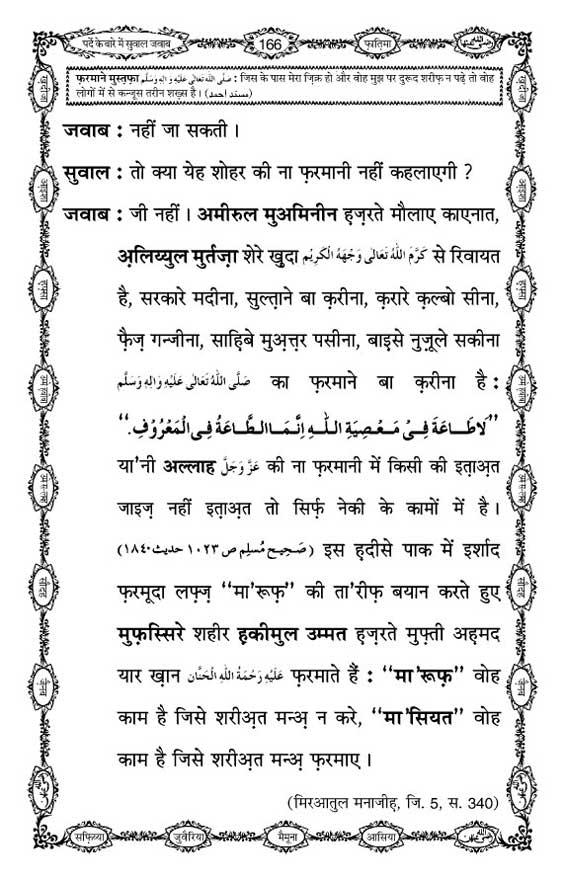 पर्दे के बारे में सुवाल जवाब 166 फ़ातिमा
फ़रमाने मुस्त़फ़ा صَلَّى اللهُ تَعَالٰى عَلَيْهِ وَاٰلِهٖ وَسَلَّم : जिस के पास मेरा ज़िक्र हो और वोह मुझ पर दुरूद शरीफ़ न पढ़े तो वोह
लोगों में से कन्जूस तरीन शख़्स है। (مسند احمد)
जवाब : नहीं जा सकती।
सुवाल : तो क्या येह शोहर की ना फ़रमानी नहीं कहलाएगी ?
जवाब : जी नहीं। अमीरुल मुअमिनीन ह़ज़रते मौलाए काएनात,
अ़लिय्युल मुर्तज़ा शेरे खुदा كَرَّمَ اللهُ تَعَالٰى وَجْهَهُ الْكَرِيْم से रिवायत
है, सरकारे मदीना, सुल्त़ाने बा क़रीना, क़रारे क़ल्बो सीना,
फ़ैज़ गन्जीना, साह़िबे मुअ़त्त़र पसीना, बाइसे नुज़ूले सकीना
صَلَّى اللهُ تَعَالٰى عَلَيْهِ وَاٰلِهٖ وَسَلَّم का फ़रमाने बा क़रीना है :
”لَاطَاعَةَ فِىْ مَعْصِيَةِ اللهِ اِنَّمَا الطَّاعَةُ فِى الْمَعْرُوْفِ.“
या'नी अल्लाह عَزَّ وَجَلَّ की ना फ़रमानी में किसी की इत़ाअ़त
जाइज़ नहीं इत़ाअ़त तो सिर्फ़ नेकी के कामों में है।
(صَحِيح مُسلِم ص ١٠٢٣ حديث ١٨٤٠) इस ह़दीसे पाक में इर्शाद
फ़रमूदा लफ़्ज़ “मा'रूफ़” की ता'रीफ़ बयान करते हुए
मुफ़स्सिरे शहीर ह़कीमुल उम्मत ह़ज़रते मुफ़्ती अह़मद
यार ख़ान عَلَيْهِ رَحْمَةُ اللهِ الْحَنَّان फ़रमाते हैं : “मा'रूफ़” वोह
काम है जिसे शरीअ़त मन्अ़ न करे, “मा'सियत” वोह
काम है जिसे शरीअ़त मन्अ़ फ़रमाए।
(मिरआतुल मनाजीह़, जि. 5, स. 340)
सफ़िय्या जुवैरिया मैमूना आसिया